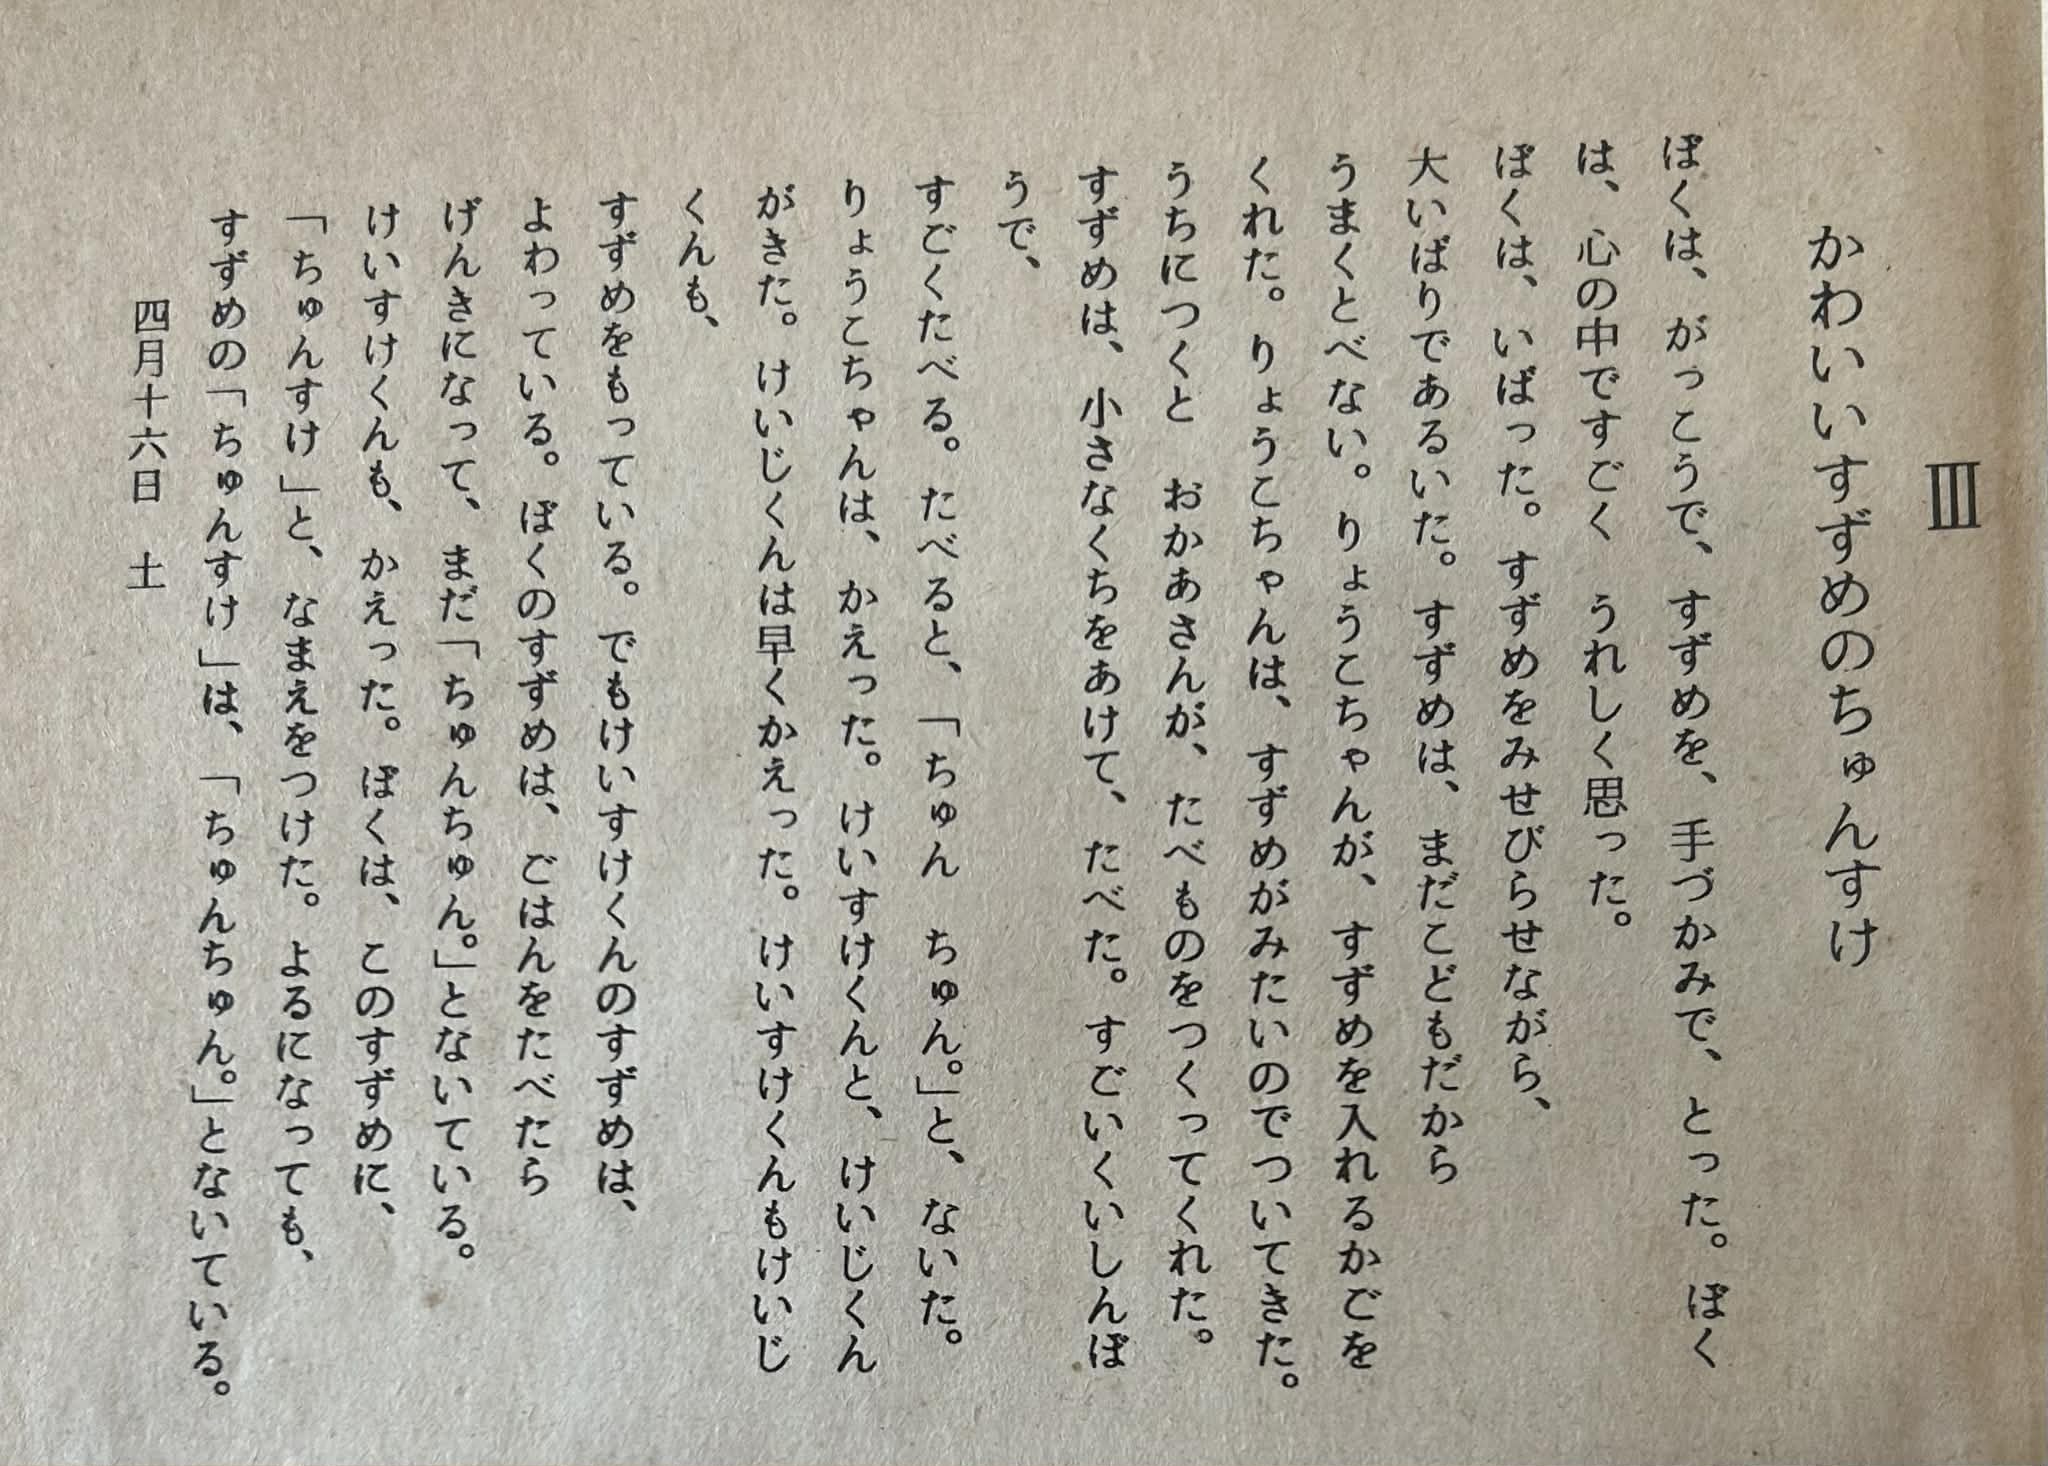 Ⅲ
かわいいすずめのちゅんすけ
ぼくは、がっこうで、すずめを、手づかみで、とった。ぼく
は、心の中ですごく　うれしく思った。
ぼくは、いばった。すずめをみせびらせながら、
大いばりであるいた。すずめは、まだこどもだから
うまくとべない。りょうこちゃんが、すずめを入れるかごを
くれた。りょうこちゃんは、すずめがみたいのでついてきた。
うちにつくと　おかあさんが、たべものをつくってくれた。
すずめは、小さなくちをあけて、たべた。すごいくいしんぼ
うで、
すごくたべる。たべると、「ちゅん　ちゅん。」と、ないた。
りょうこちゃんは、かえった。けいすけくんと、けいじくん
がきた。けいじくんは早くかえった。けいすけくんもけいじ
くんも、
すずめをもっている。でもけいすけくんのすずめは、
よわっている。ぼくのすずめは、ごはんをたべたら
げんきになって、まだ「ちゅんちゅん。」とないている。
けいすけくんも、かえった。ぼくは、このすずめに、
「ちゅんすけ」と、なまえをつけた。よるになっても、
すずめの「ちゅんすけ」は、「ちゅんちゅん。」とないている。
四月十六日　土